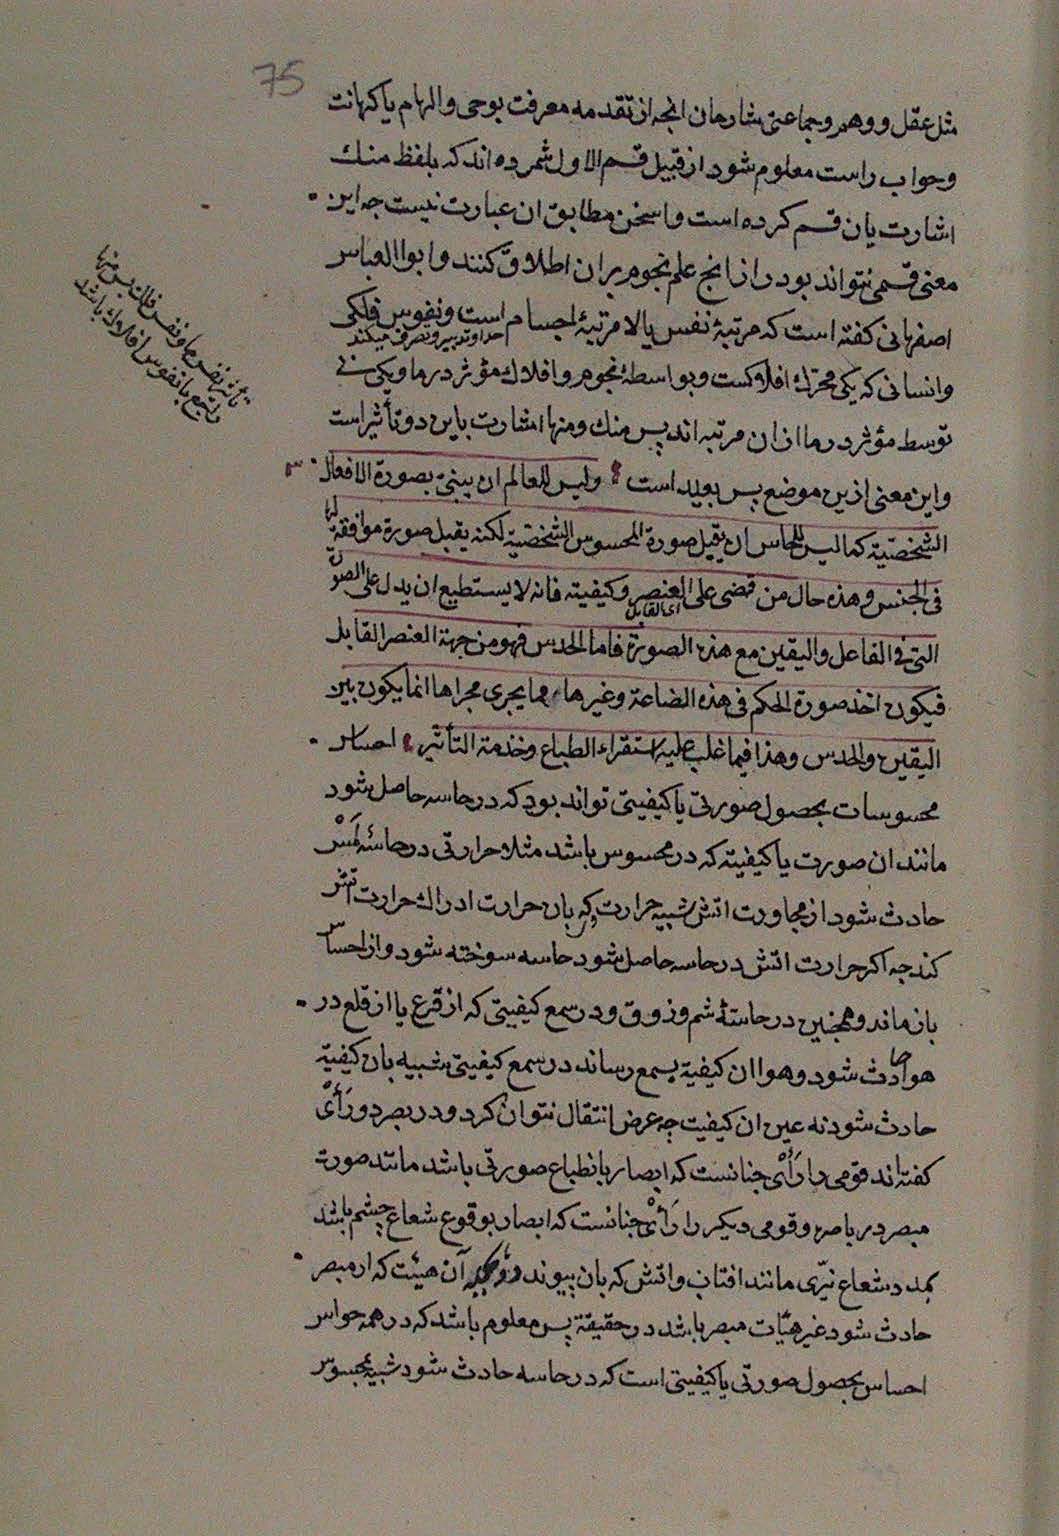 75
مثل عقل و وهم و جماعتی شارحان انجه از تقدمه معرفت بوحی و الهام یا کهانت
و جواب راست معلوم شود از قبیل قسم الاول شمرده‌اند که بلفظ منک
اشارت بان قسم کرده است و اسخن مطابق ان عبارت نیست جه این
معنی قسمی نتواند بود از انج علم نجوم بران اطلاق کنند و ابوا العباس
اصفهانی کفته است که مرتبهٔ نفس بالا مرتبهٔ اجسام است و نفوس فلکی
و تدبیر و تصرف میکند
و انسانی که یکی محرک افلاکست و بواسطهٔ نجوم و افلاک مؤثر در ما و یکی بی
توسط مؤثر در ما ازان مرتبه اند پس منک و منها اشارت باین دو تأثیر است
و این معنی ازین موضع بس بعید است ولیس للعالم ان یبنیٔ بصورة الافعال
الشخصّیة کما لیس للحاس ان یقبل صورة المحسوس الشخصّیة لکنه یقبل صورة موافقة لها
فی الجنس وهذه حال من قضی علی العنصر وکیفیته فانه لا یستطیع ان یدل علی الصورة
ای القابل
التی فی الفاعل والیقین مع هذه الصورة فاما الحدس فهو من جهة العنصر القابل
فیکون اخذ صورة الحکم فی هذه الضاعة وغیرها مما یجری مجراها انما یکون بین
الیقین والحدس وهذا فیما غلب علیه استقراء الطباع وخدمة التأثیر احساس
محسوسات بحصول صورتی یا کیفیتی تواند بود که در حاسه حاصل شود
مانند ان صورت یا کیفیته که در محسوس باشد مثلا حرارتی در حاسّهٔ لَمْس
حادث شود از مجاورت اتش شبیه حرارت که بان حرارت ادراک حرارت اتش
کند جه اکر حرارت اتش در حاسه حاصل شود حاسه سوخته شود و از احساس
باز ماند و همجنین در حاسّهٔ شم و ذوق و در سمع کیفیتی که از قرع یا از قلع در
هوا حادث شود و هوا ان کیفیة بسمع رساند در سمع کیفیتی شبیه بان کیفیة
حادث شود نه عین ان کیفیت جه عرض انتقال نتوان کرد و در بصر دو رَأْی
کفته‌اند قومی را رَأْی جنانست که ابصار بانطباع صورتی باشد مانند صورت
مبصر در باصره و قومی دیکر را رَأْی جنانست که ابصار بوقوع شعاع چشم باشد
بمدد شعاع نیّری مانند افتاب و اتش که بان پیوند آن هیئت که از مبصر
حادث شود غیر هیّات مبصر باشد در حقیقة پس معلوم باشد که در همه حواس
احساس بحصول صورتی یا کیفیتی است که در حاسه حادث شود شبیه بمحسوس